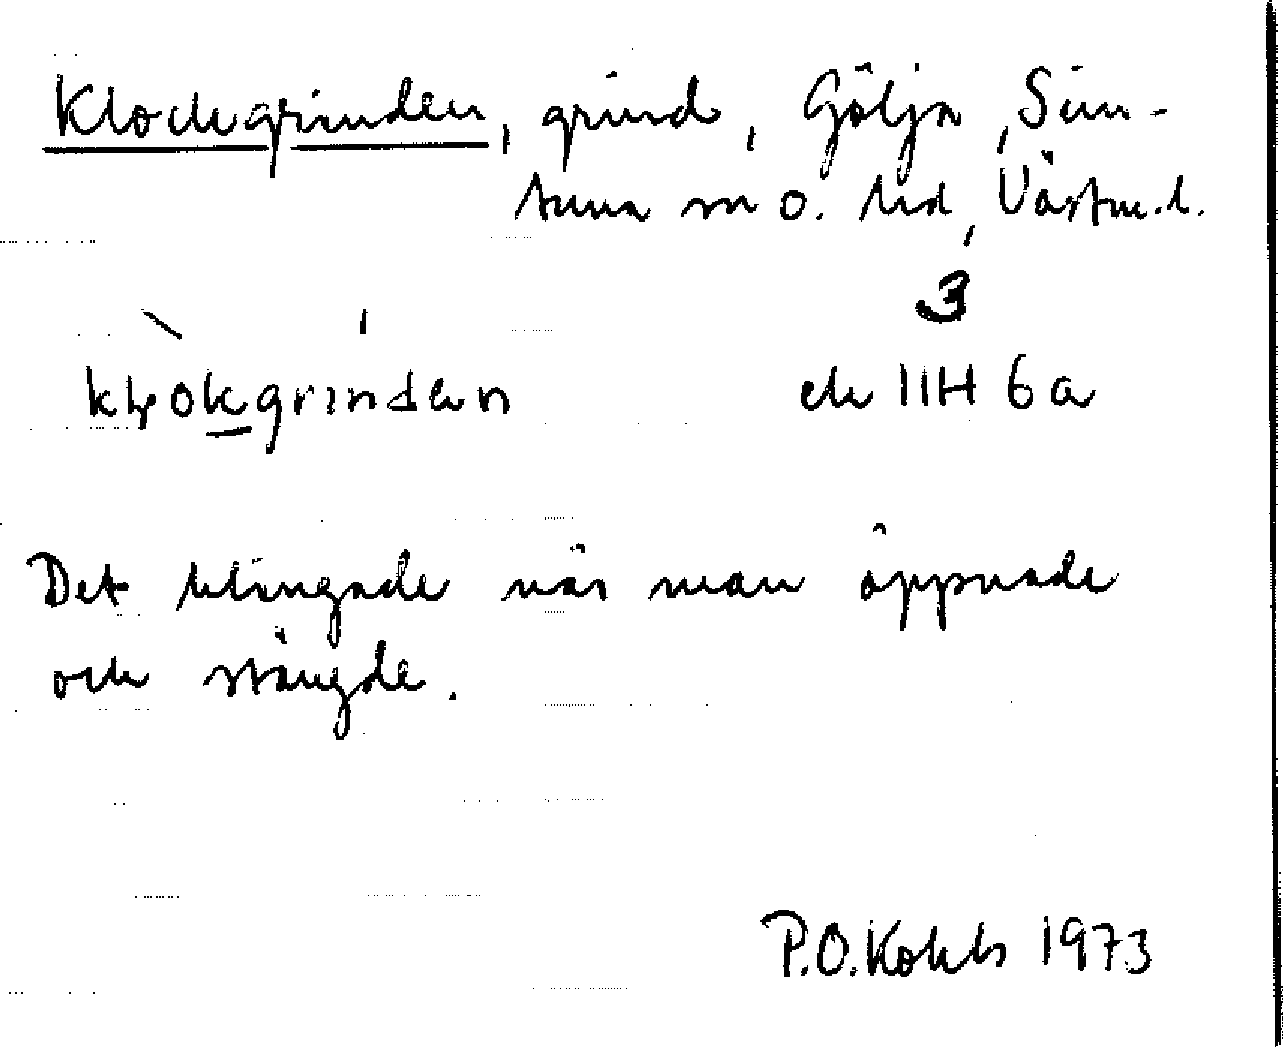 Klockgrinden, grind, Gölja, Sim-
tuna sn o. hd, Västm.l.
3
klɷkgrindən
ek 11H 6a
Det klingade när man öppnade
och stängde.
P.O. 1973